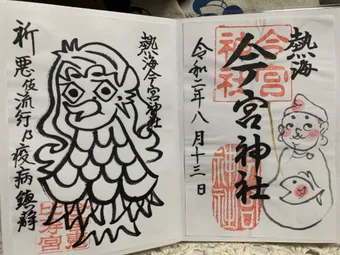 熱海
今宮神社
令和二年八月十三日
今宮
神社
熱海今宮神社
祈 悪疫流行乃疫病鎮静